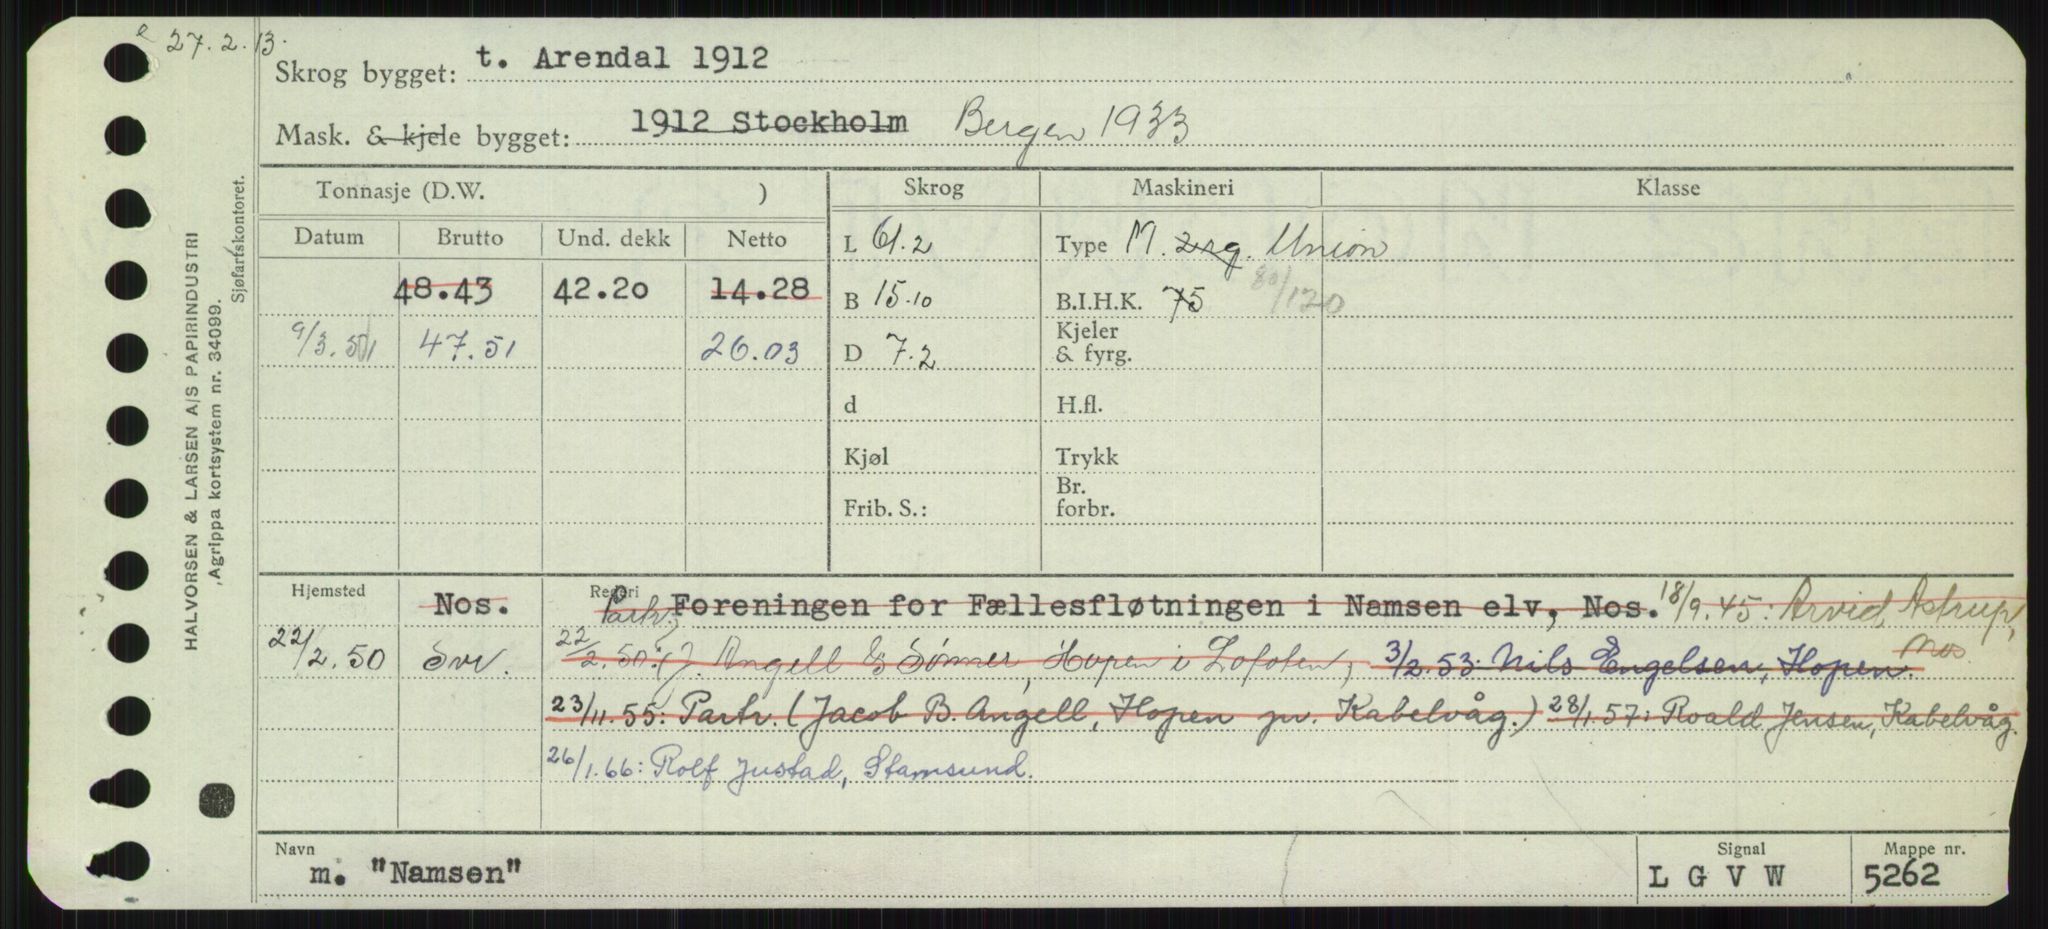 27.2.13.
Skrog bygget: t. Arendal 1912
Mask. & kjele bygget: 1912 Stockholm Bergen 1933
Tonnasje (D.W. ) Skrog Maskineri Klasse
Datum Brutto Und. dekk Netto L 61.2 Type M. 2xrg. Union
48.43 42.20 14.28 B 15.10 B.I.H.K. 75 80/120
9/3.51 47.51 26.03 D 7.2 Kjeler
& fyrg.
d H.fl.
Kjøl Trykk
Frib. S.: Br.
forbr.
Hjemsted Rederi
Nos. Partr. Foreningen for Fællesfløtningen i Namsen elv, Nos. 18/9.45: Arvid Astrup, Nos.
22/2.50 Svv. 22/2.50: (J. Angell & Sønner, Hopen i Lofoten, 3/2.53: Nils Engelsen, Hopen.
23/11.55: Partr. (Jacob B. Angell, Hopen pr. Kabelvåg.) 28/1.57: Roald Jensen, Kabelvåg.
26/1.66: Rolf Justad, Stamsund.
Navn Signal Mappe nr.
m. "Namsen" L G V W 5262
HALVORSEN & LARSEN A/S PAPIRINDUSTRI
"Agrippa kortsystem nr. 34099.
Sjøfartskontoret.